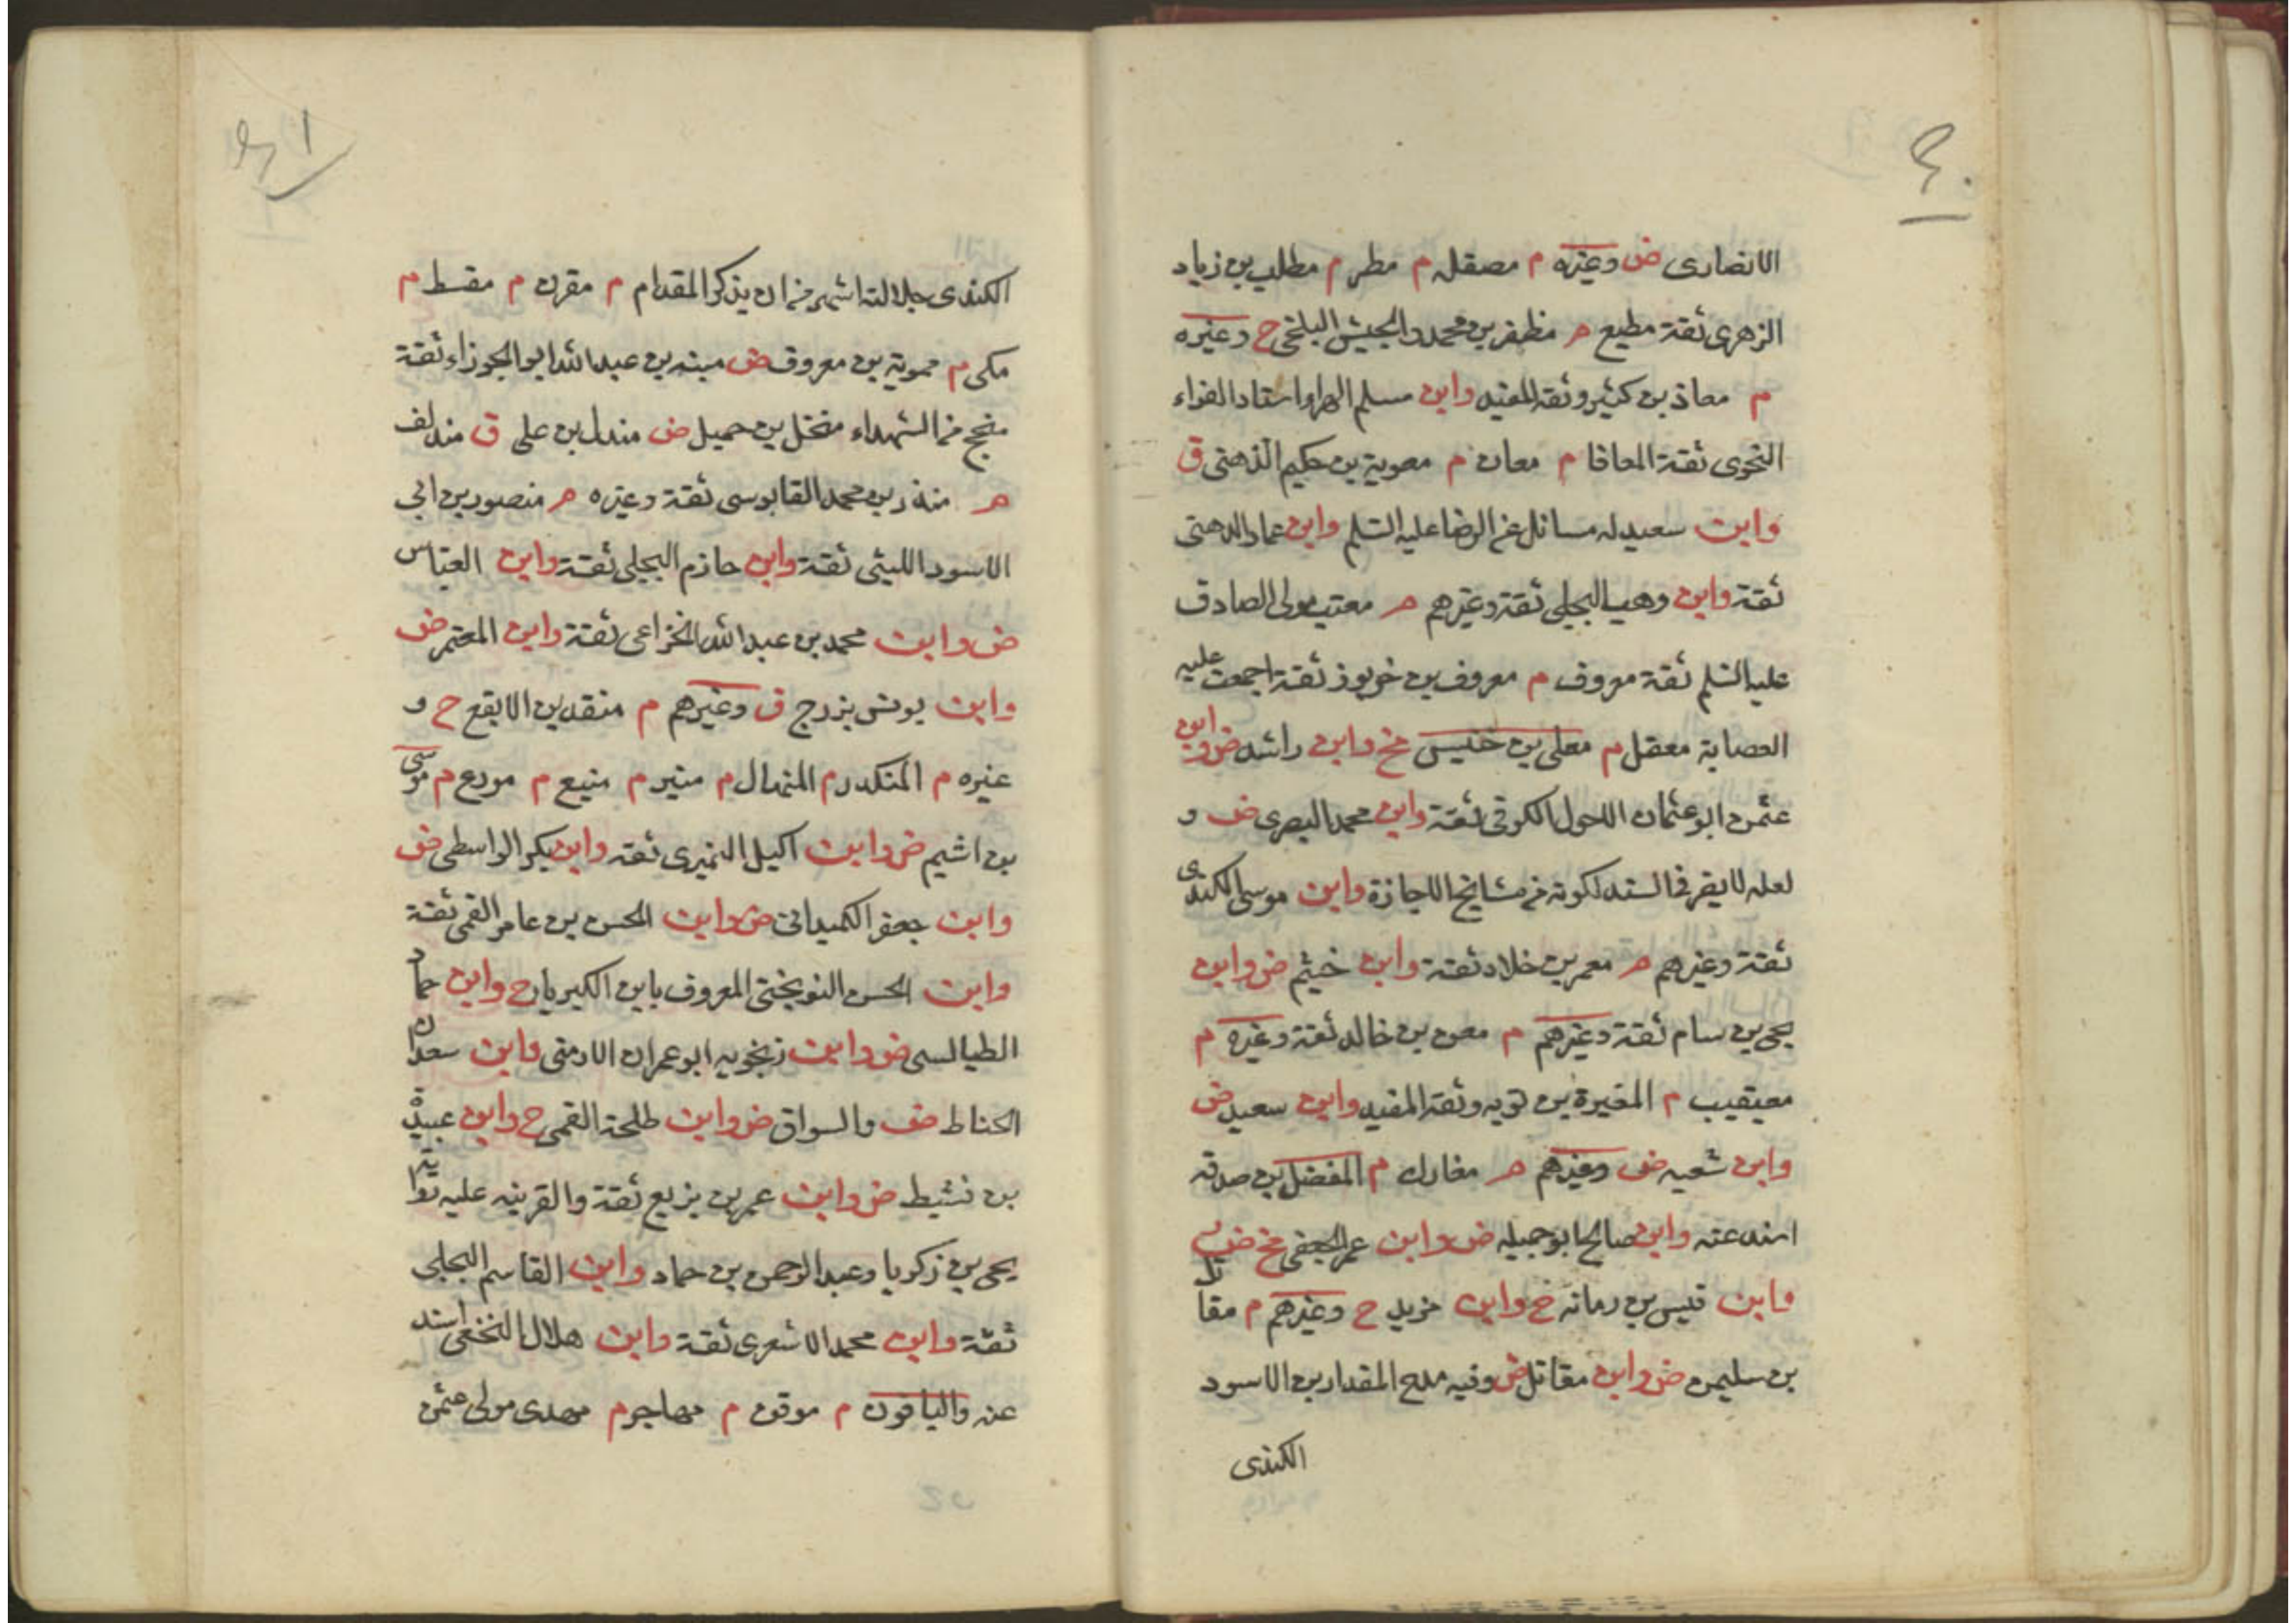 ٤٠
الانصارى ض وغيره م مصقله م مطر م مطلب بن زياد
الزهرى ثقة مطيع م مظفر بن محمد والجيش البلخى ح وغيره
م معاذ بن كثير وثقه المفيد وابن مسلم الهرا استاد الفراء
النحوى ثقة المعافا م معان م معوية بن حكيم الذهنى ق
وابن سعيد له مسائل عن الرضا عليه السلم وابن عماد الدهنى
ثقة وابن وهب البجلى ثقة وغيرهم م معتب مولى الصادق
عليه السلم ثقة معروف م معروف بن خربوذ ثقة اجمعت عليه
العصابة معقل م معلى بن خنيس مخ وابن راشد ض وابن
عثمن ابو عثمان الاحول الكوفى ثقة وابن محمد البصرى ض و
لعله لا يضر فى السند لكونه من مشايخ الاجازة وابن موسى الكندى
ثقة وغيرهم م معمر بن خلاد ثقة وابن خيثم ض وابن
يحيى بن سام ثقة وغيرهم م معن بن خالد ثقة وغيره م
معيقيب م المغيرة بن توبه وثقه المفيد وابن سعيد ض
وابن شعبه ض وغيرهم م مغارك م المفضل بن صدقه
اسند عنه وابن صالح ابو جميله ض وابن عمر الجعفى مخ ض
وابن قيس بن رمانه خ وابن مزيد ح وغيرهم م مقاتل
بن سليمن ض وابن مقاتل ض وفيه مدح المقداد بن الاسود
الكندى
٤١
الكندى جلالته اشهر من ان يذكر المقدام م مقرن م مقسط م
مكى م مموية بن معروف ض ميته بن عبد الله ابو الجوزاء ثقة
منجح من الشهداء منخل بن جميل ض مندل بن على ق مندلف
م منذر بن محمد القابوسى ثقة وغيره م منصور بن ابى
الاسود الليثى ثقة وابن حازم البجلى ثقة وابن العباس
ض وابن محمد بن عبد الله الخزاعى ثقة وابن المعتمر ض
وابن يونس بزرج ق وغيرهم م منقد بن الابقع ح و
غيره م المنكدر م المنهال م منير م منيع م مورع م موسى
بن اشيم ض وابن اكيل النميرى ثقه وابن بكر الواسطى ض
وابن جعفر الكميدانى ض وابن الحسن بن عامر القمى ثقة
وابن الحسن النوبختى المعروف بابن الكبريا ح وابن حماد
الطيالسى ض وابن زنجويه ابو عمران الارمنى وابن سعدان
الحناط ض والسواق ض وابن طلحة القمى ح وابن عبيدة
بن نشيط ض وابن عمر بن بزيع ثقة والقرينه عليه رواية
يحيى بن زكريا وعبد الرحمن بن حماد وابن القاسم البجلى
ثقة وابن محمد الاشعرى ثقة وابن هلال النخعى اسند
عنه والباقون م موقن م مهاجر م مهدى مولى عثمن